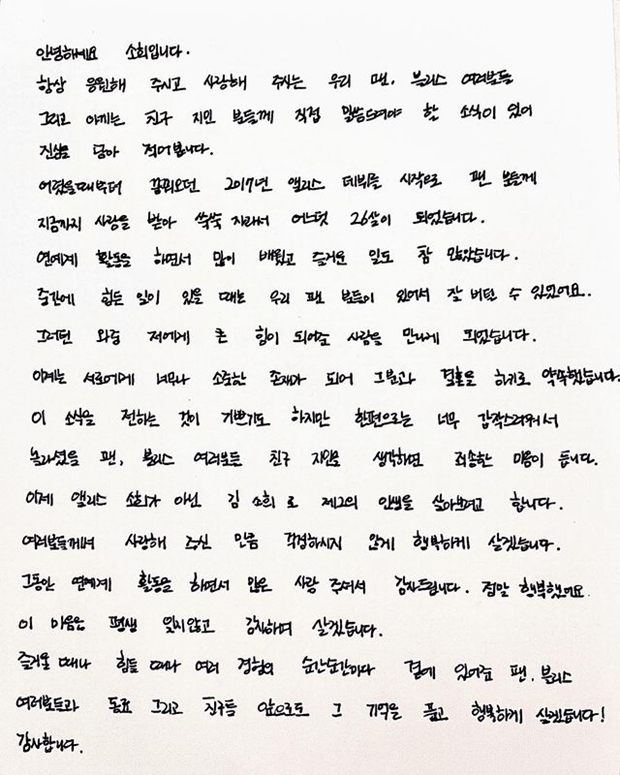 안녕하세요 소희입니다.
항상 응원해 주시고 사랑해 주시는 우리 팬, 블리스 여러분들
그리고 아끼는 친구 지인 분들께 직접 말씀드려야 할 소식이 있어
진심을 담아 적어봅니다.
어렸을때부터 꿈꿔오던 2017년 앨리스 데뷔를 시작으로 팬 분들께
지금까지 사랑을 받아 쑥쑥 자라서 어느덧 26살이 되었습니다.
연예계 활동을 하면서 많이 배웠고 즐거운 일도 참 많았습니다.
중간에 힘든 일이 있을 때는 우리 팬 분들이 있어서 잘 버틸 수 있었어요.
그러던 와중 저에게 큰 힘이 되어준 사람을 만나게 되었습니다.
이제는 서로에게 너무나 소중한 존재가 되어 그분과 결혼을 하기로 약속했습니다.
이 소식을 전하는 것이 기쁘기도 하지만 한편으로는 너무 갑작스러워서
놀라셨을 팬, 블리스 여러분들 친구 지인을 생각하면 죄송한 마음이 듭니다.
이제 앨리스 소희가 아닌 김소희로 제2의 인생을 살아보려고 합니다.
여러분들께서 사랑해 주신 만큼 걱정하시지 않게 행복하게 살겠습니다.
그동안 연예계 활동을 하면서 많은 사랑 주셔서 감사드립니다. 정말 행복했어요.
이 마음은 평생 잊지않고 감사하며 살겠습니다.
즐거울 때나 힘들 때나 여러 경험의 순간순간마다 곁에 있어준 팬, 블리스
여러분들과 동료 그리고 친구들 앞으로도 그 기억을 품고 행복하게 살겠습니다!
감사합니다.